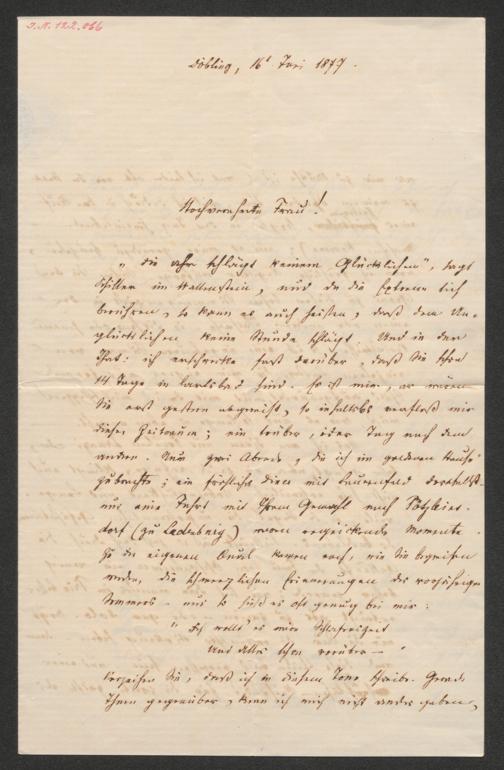 J.N. 122.066
Döbling, 16t Juni 1877.
Hochverehrte Frau!
„Die Uhr schlägt keinem Glücklichen“, sagt
Schiller im Wallenstein, und da die Extreme sich
berühren, so kann es auch heißen, daß dem Un-
glücklichen keine Stunde schlägt. Und in der
That: ich erschrecke fast darüber, daß Sie schon
14 Tage in Carlsbad sind. Es ist mir, als wären
Sie erst gestern abgereist, so inhaltslos verfloß mir
dieser Zeitraum; ein trüber, öder Tag nach dem
andern. Nur zwei Abende, die ich im goldenen Hause
zubrachte; ein fröhliches Diner mit Lauenfeld
und eine Fahrt mit Ihrem Gemahl nach Pötzleins-
dorf (zu Ladenburg) waren erquickende Momente.
Zu der eigenen Qual kamen noch, wie Sie begreifen
werden, die schmerzlichen Erinnerungen des vorjährigen
Sommers – und so hieß es oft genug bei mir:
„Ich wollt' es wäre Schlafenszeit
Und Alles schon vorüber – “
Verzeihen Sie, daß ich in diesem Tone schreibe. Gerade
Ihnen gegenüber kann ich mich nicht anders geben,